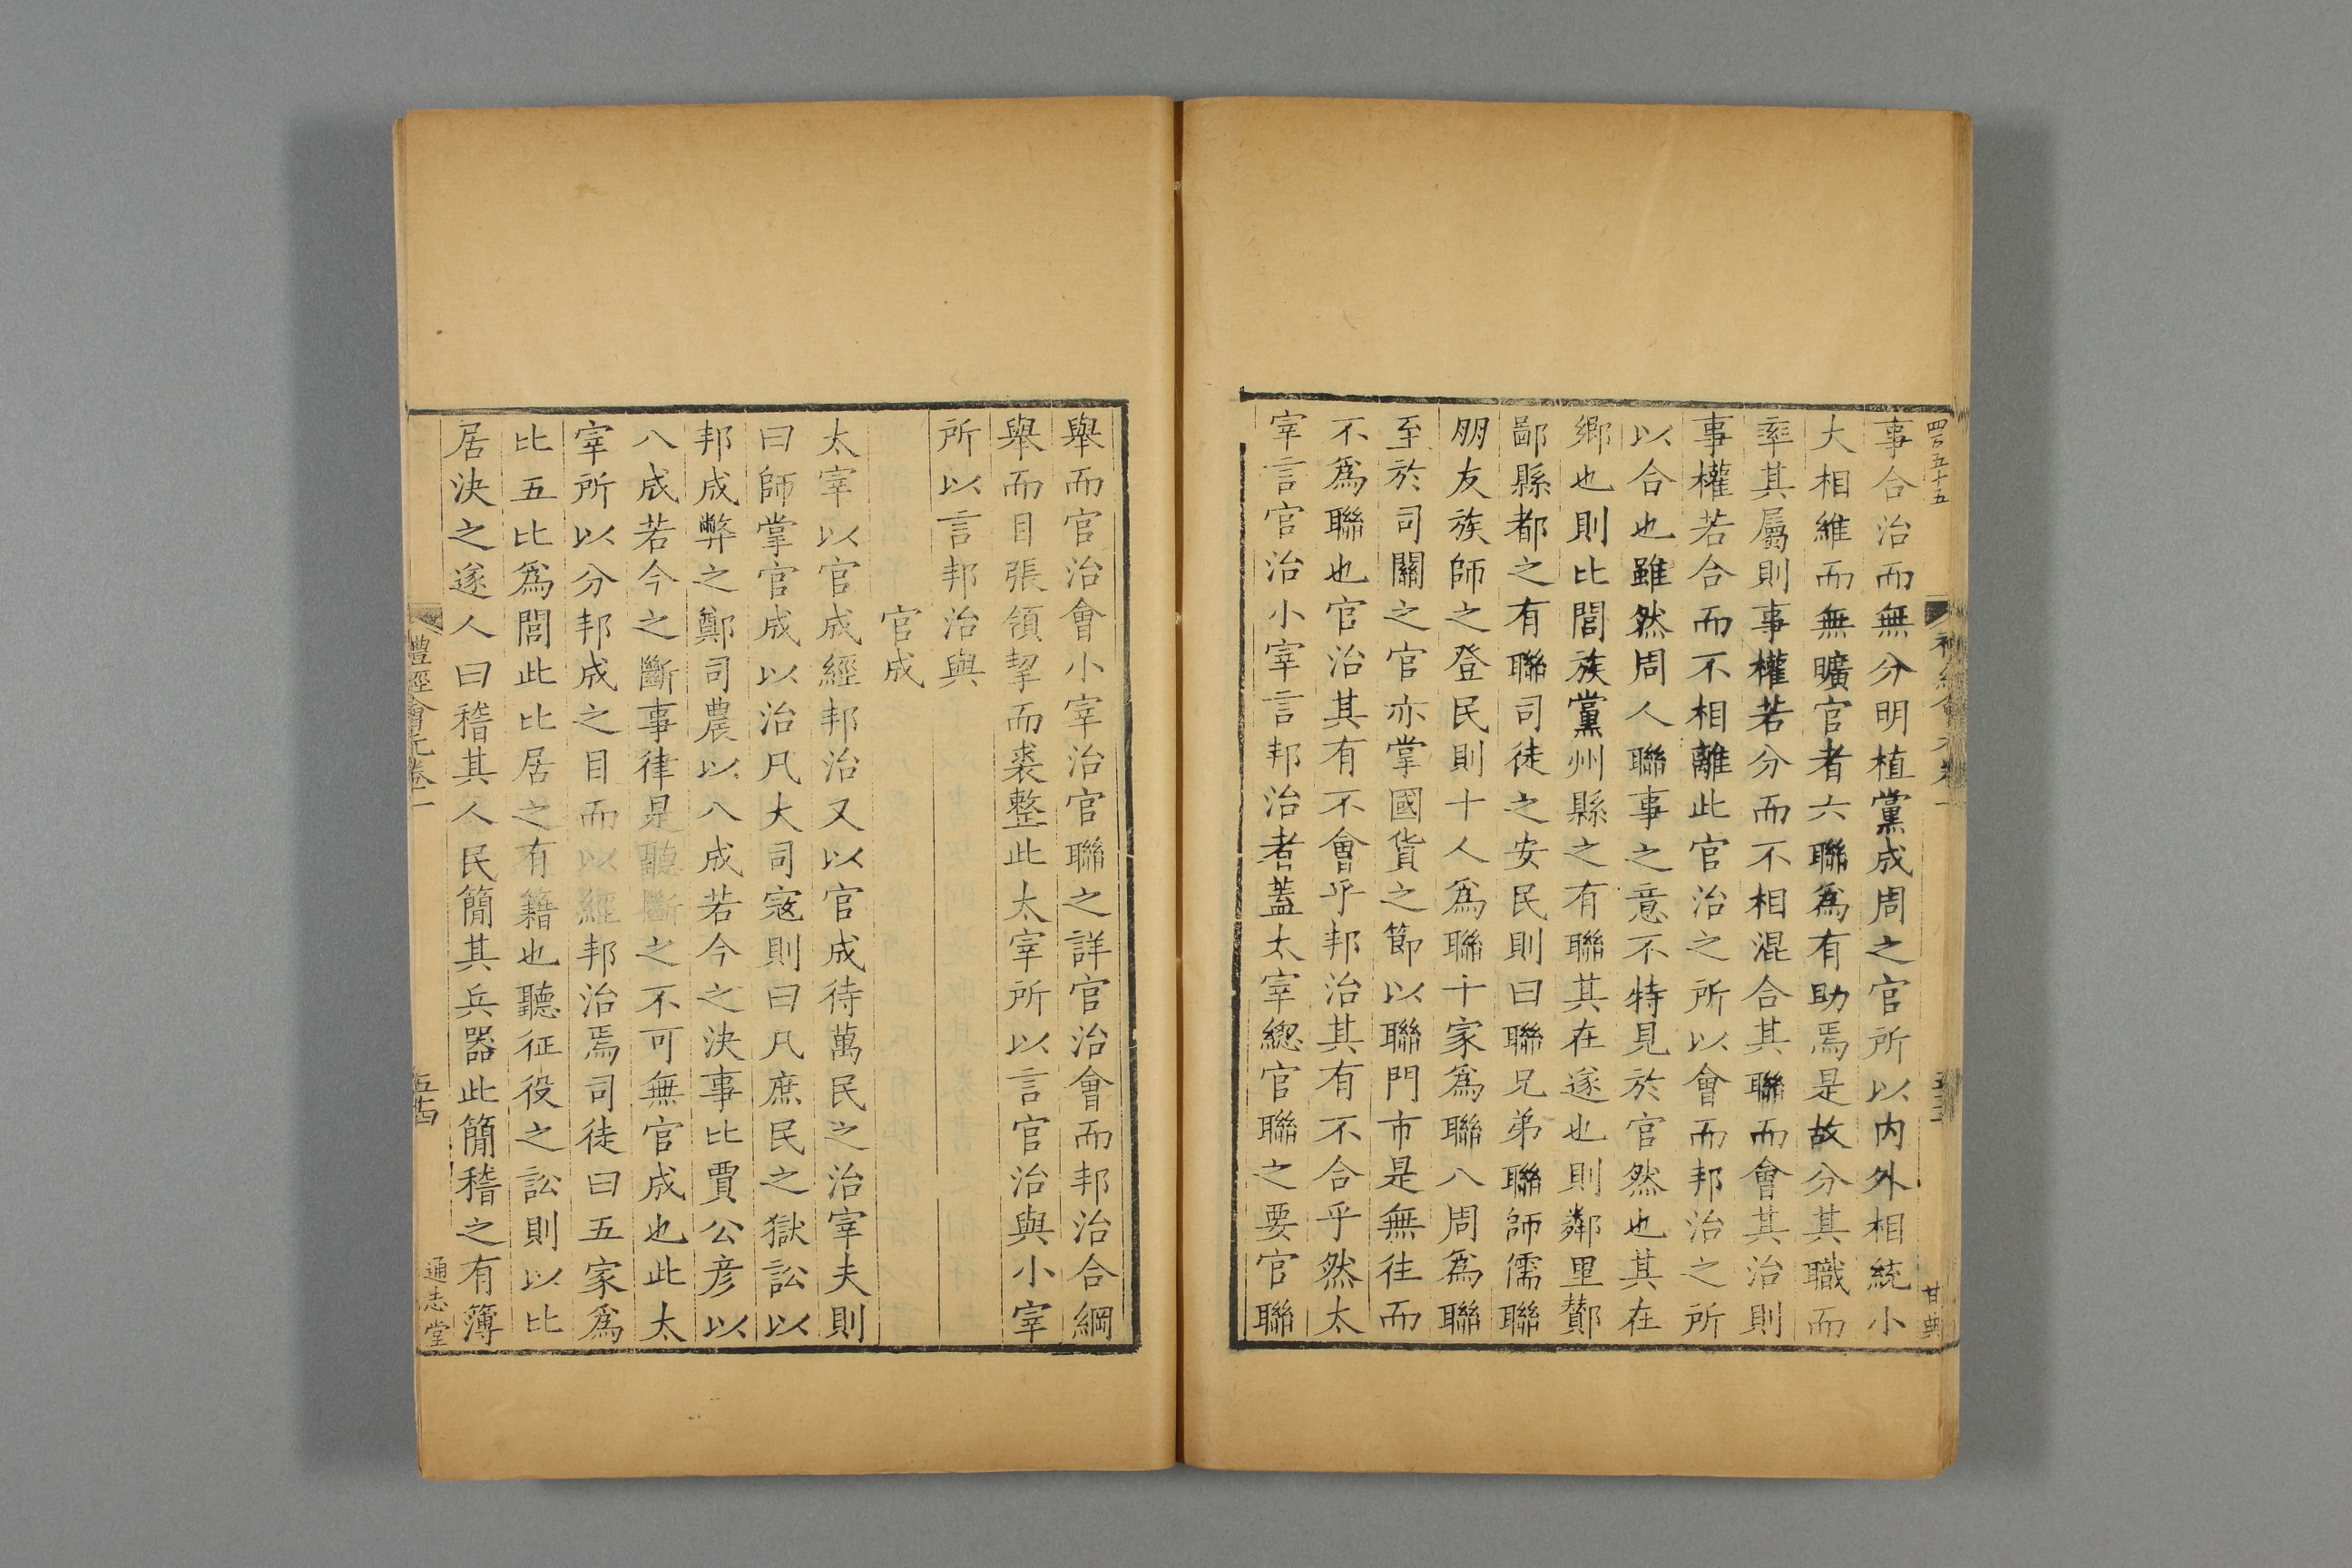 四百五十五
事合治而無分明植黨成周之官所以内外相統小
大相維而無曠官者六聯爲有助焉是故分其職而
率其屬則事權若分而不相混合其聯而會其治則
事權若合而不相離此官治之所以會而邦治之所
以合也雖然周人聯事之意不特見於官然也其在
鄉也則比閭族黨州縣之有聯其在遂也則鄰里酇
鄙縣都之有聯司徒之安民則曰聯兄弟聯師儒聯
朋友族師之登民則十人爲聯十家爲聯八周爲聯
至於司關之官亦掌國貨之節以聯門市是無往而
不爲聯也官治其有不會乎邦治其有不合乎然太
宰言官治小宰言邦治者蓋太宰總官聯之要官聯
舉而官治會小宰治官聯之詳官治會而邦治合綱
舉而目張領挈而裘整此太宰所以言官治與小宰
所以言邦治與
官成
太宰以官成經邦治又以官成待萬民之治宰夫則
曰師掌官成以治凡大司寇則曰凡庶民之獄訟以
邦成弊之鄭司農以八成若今之決事比賈公彦以
八成若今之斷事律是聽斷之不可無官成也此太
宰所以分邦成之目而以經邦治焉司徒曰五家爲
比五比爲閭此比居之有籍也聽征役之訟則以比
居決之遂人曰稽其人民簡其兵器此簡稽之有簿
禮經會元卷二
五十四
通志堂